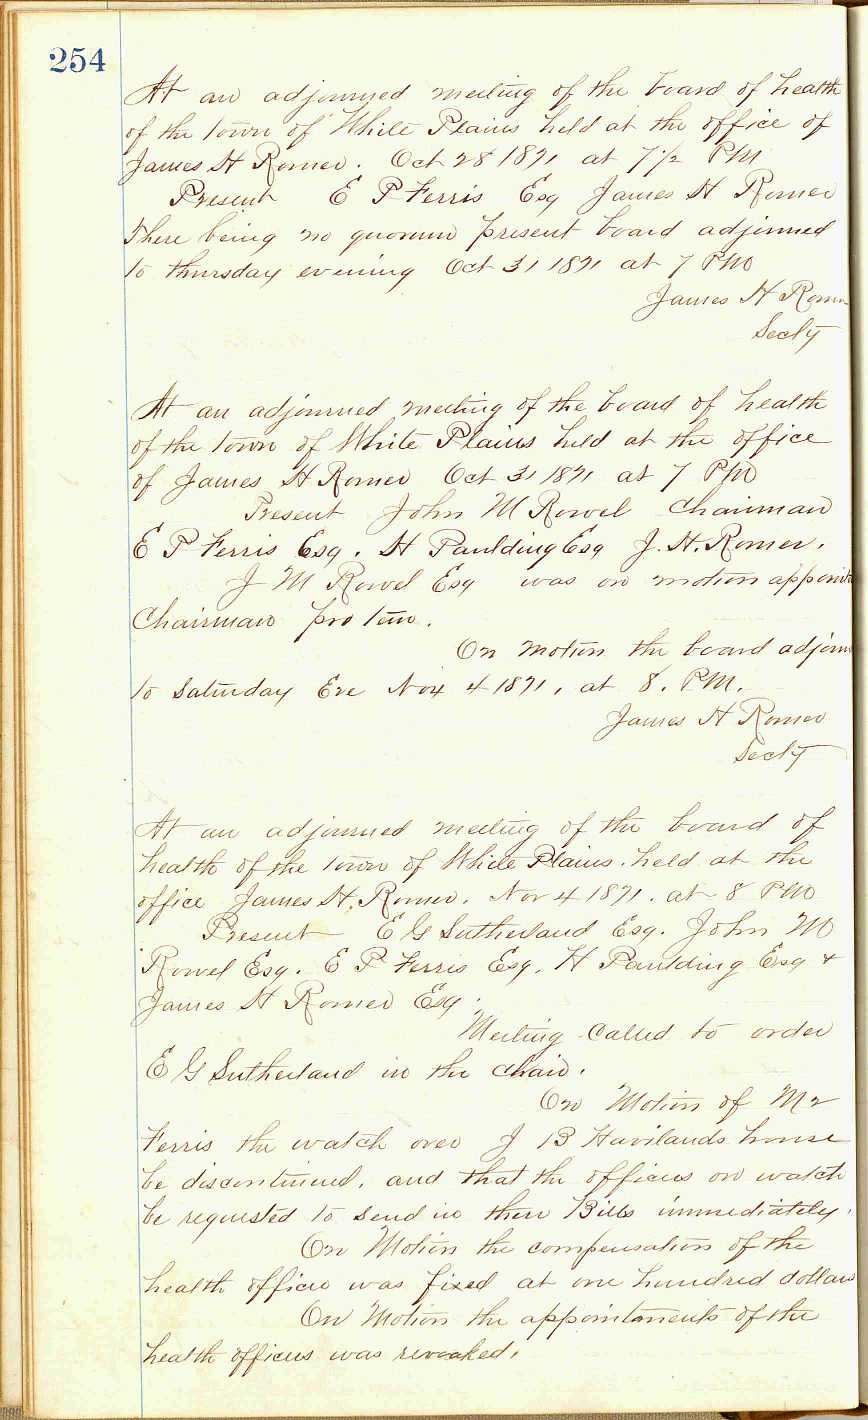 254
At an adjourned meeting of the board of health
of the town of White Plains held at the office of
James H Romer. Oct 28 1871 at 7 1/2 PM
Present E P Ferris Esq James H Romer
There being no quorum present board adjirned
to thursday evening Oct 31 1871 at 7 PM
James H Romer
Secty
At an adjourned meeting of the board of health
of the town of White Plains held at the office
of James H Romer Oct 31 1871 at 7 PM
Present John M Rowel Chairman
E P Ferris Esq. H Paulding Esq J. H. Romer.
J M Rowel Esq was on motion appoint
Chairman pro tem.
On motion the board adjorn
to Saturday Eve Nov 4 1871, at 8. PM.
James H Romer
Secty
At an adjourned meeting of the board of
health of the town of White Plains. held at the
office James H. Romer. Nov 4 1871. at 8 PM
Present E G Sutherland Esq. John M
Rowel Esq. E P Ferris Esq. H Paulding Esq &
James H Romer Esq.
Meeting called to order
E G Sutherland in the chair.
On Motion of Mr
Ferris the watch over J B Havilands house
be discontinued, and that the officers on watch
be requested to send in there Bills immediately.
On Motion the compensation of the
health officer was fixed at one hundred dollars
On Motion the appointments of the
health officers was revoked.